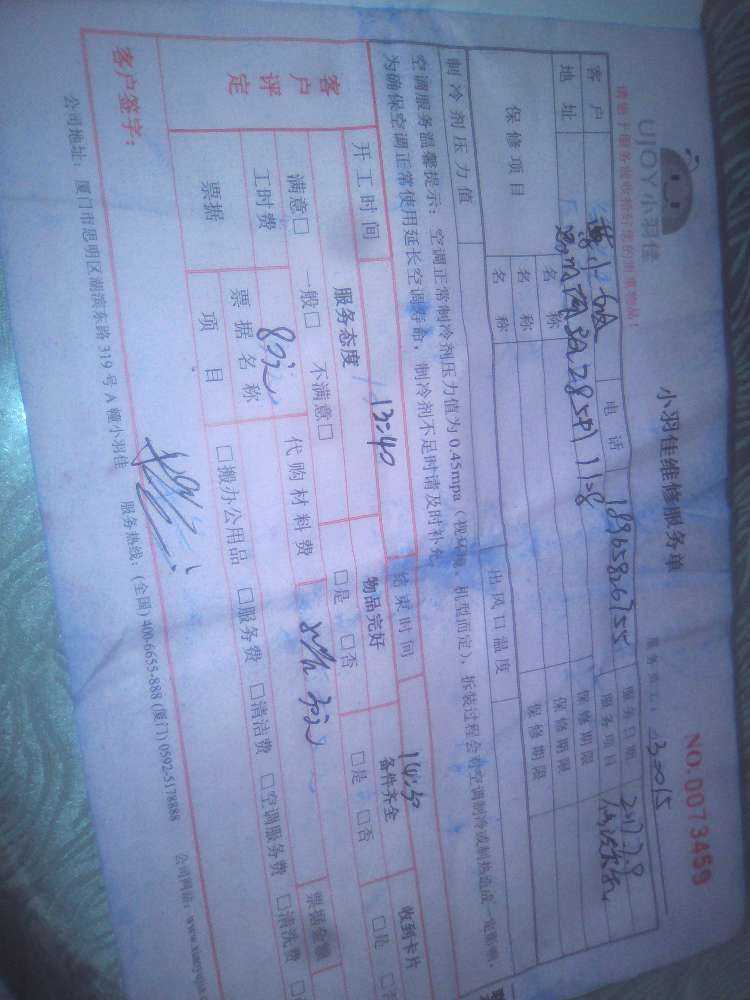 UJOY小羽佳
小羽佳维修服务单
NO.0073459
请您于服务前收拾好您的贵重物品！
服务员工：
30015
客户
电话
18965826755
服务日期
地址
服务项目
保修项目
名称
保修期限
名称
保修期限
名称
保修期限
制冷剂压力值
出风口温度
空调服务温馨提示：空调正常制冷剂压力值为0.45mpa（视环境、机型而定），拆装过程会对空调制冷或制热造成一定影响，
为确保空调正常使用延长空调寿命，制冷剂不足时请及时补充
开工时间
13:40
结束时间
14:30
客户评定
服务态度
物品完好
备件齐全
收到卡片
满意□ 一般□ 不满意□
□是 □否
□是 □否
□是
工时费
80元
代购材料费
30元
票据金额
票据
票据名称
项目
□搬办公用品 □服务费 □清洁费 □空调服务费 □清洗费
客户签字：
公司地址：厦门市思明区湖滨东路319号A幢小羽佳 服务热线：(全国) 400-6655-888 (厦门) 0592-5178888 公司网站：